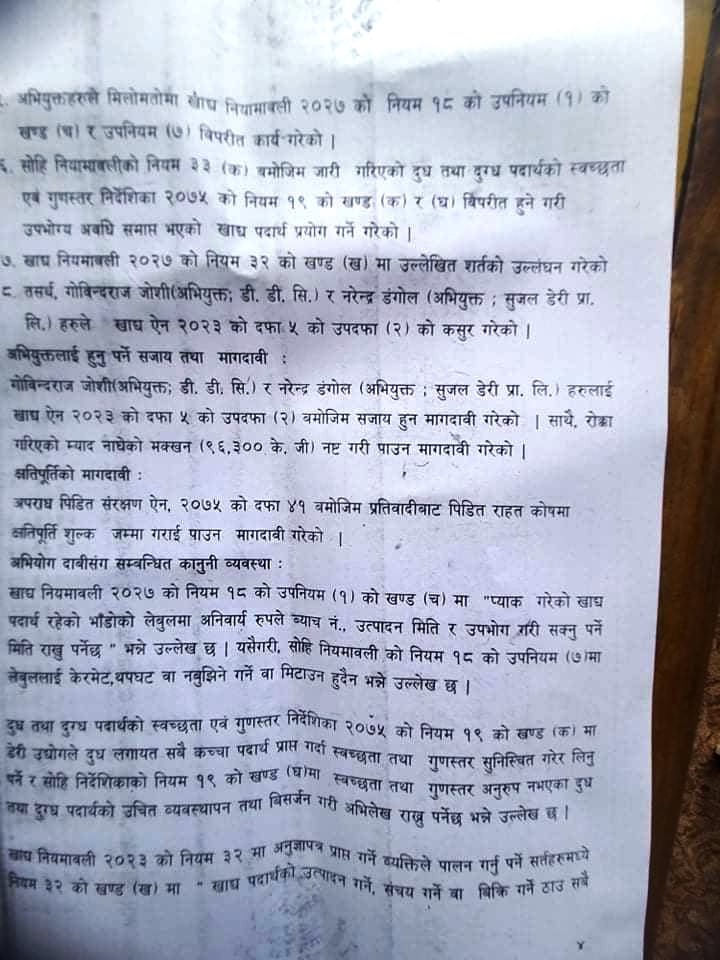 . अभियुक्तहरुले मिलोमतोमा खाद्य नियामावली २०२७ को नियम १८ को उपनियम (१) को
खण्ड (च) र उपनियम (७) विपरीत कार्य गरेको |
६. सोहि नियामावलीको नियम ३३ (क) बमोजिम जारी गरिएको दुध तथा दुग्ध पदार्थको स्वच्छता
एवं गुणस्तर निर्देशिका २०७५ को नियम १९ को खण्ड (क) र (घ) विपरीत हुने गरी
उपभोग्य अवधि समाप्त भएको खाद्य पदार्थ प्रयोग गर्ने गरेको |
७. खाद्य नियमावली २०२७ को नियम ३२ को खण्ड (ख) मा उल्लेखित शर्तको उल्लंघन गरेको
८. तसर्थ, गोविन्दराज जोशी(अभियुक्त; डी. डी. सि.) र नरेन्द्र डंगोल (अभियुक्त ; सुजल डेरी प्रा.
लि.) हरुले खाद्य ऐन २०२३ को दफा ५ को उपदफा (२) को कसुर गरेको |
अभियुक्तलाई हुनु पर्ने सजाय तथा मागदावी :
गोविन्दराज जोशी(अभियुक्त; डी. डी. सि.) र नरेन्द्र डंगोल (अभियुक्त ; सुजल डेरी प्रा. लि.) हरुलाई
खाद्य ऐन २०२३ को दफा ५ को उपदफा (२) बमोजिम सजाय हुन मागदावी गरेको | साथै, रोक्का
गरिएको म्याद नाघेको मक्खन (९६,३०० के. जी) नष्ट गरी पाउन मागदावी गरेको |
क्षतिपूर्तिको मागदावी :
अपराध पिडित संरक्षण ऐन, २०७५ को दफा ४१ बमोजिम प्रतिवादीबाट पिडित राहत कोषमा
क्षतिपूर्ति शुल्क जम्मा गराई पाउन मागदावी गरेको |
अभियोग दावीसंग सम्बन्धित कानुनी व्यवस्था :
खाद्य नियमावली २०२७ को नियम १८ को उपनियम (१) को खण्ड (च) मा "प्याक गरेको खाद्य
पदार्थ रहेको भाँडोको लेबुलमा अनिवार्य रुपले ब्याच नं., उत्पादन मिति र उपभोग गरी सक्नु पर्ने
मिति राख्नु पर्नेछ " भन्ने उल्लेख छ | यसैगरी, सोहि नियमावली को नियम १८ को उपनियम (७)मा
लेबुललाई केरमेट,थपघट वा नबुझिने गर्ने वा मिटाउन हुदैन भन्ने उल्लेख छ |
दुध तथा दुग्ध पदार्थको स्वच्छता एवं गुणस्तर निर्देशिका २०७५ को नियम १९ को खण्ड (क) मा
डेरी उद्योगले दुध लगायत सबै कच्चा पदार्थ प्राप्त गर्दा स्वच्छता तथा गुणस्तर सुनिस्चित गरेर लिनु
पर्ने र सोहि निर्देशिकाको नियम १९ को खण्ड (घ)मा स्वच्छता तथा गुणस्तर अनुरुप नभएका दुध
तथा दुग्ध पदार्थको उचित व्यवस्थापन तथा बिसर्जन गरी अभिलेख राख्नु पर्नेछ भन्ने उल्लेख छ |
खाद्य नियमावली २०२३ को नियम ३२ मा अनुज्ञापत्र प्राप्त गर्ने व्यक्तिले पालन गर्नु पर्ने सर्तहरुमध्ये
नियम ३२ को खण्ड (ख) मा " खाद्य पदार्थको उत्पादन गर्ने, संचय गर्ने वा बिक्रि गर्ने ठाउ सबै
४